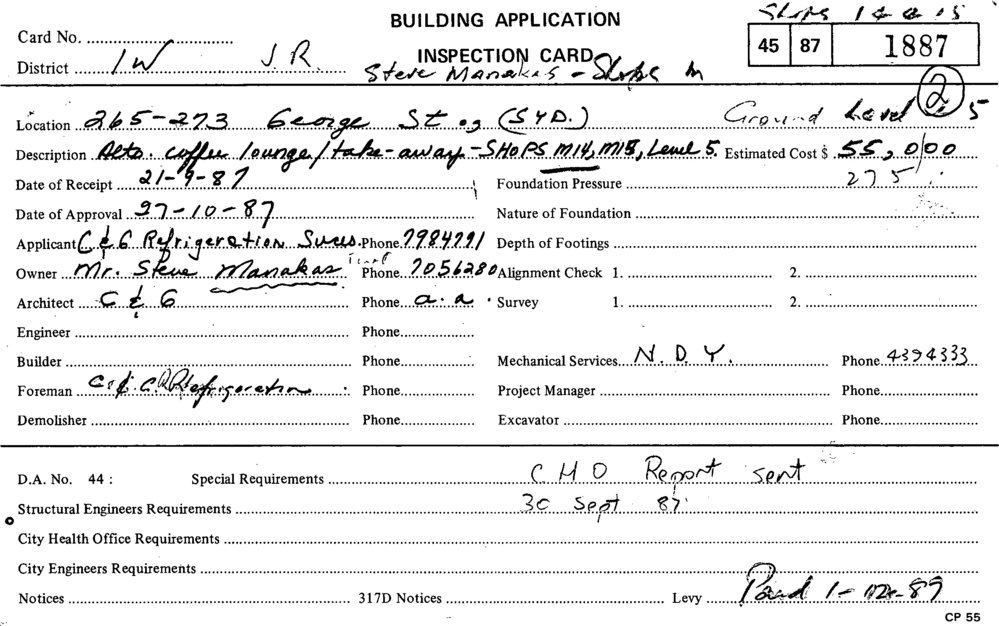 BUILDING APPLICATION Shops 14 & 15
Card No. 45 87 1887
INSPECTION CARD
District 1W J.R. Steve Manakas - Shops
Ground Level 2 5
Location 265-273 George St (SYD.)
Description Alto. coffee lounge/take-away - SHOPS M14, M15, Level 5. Estimated Cost $ 55,000
Date of Receipt 21-9-87 Foundation Pressure 275
Date of Approval 27-10-87 Nature of Foundation
Applicant C & G Refrigeration Svces. Phone 7984791 Depth of Footings
Owner Mr. Steve Manakas Phone 7056280 Alignment Check 1. 2.
Architect C & G Phone a.a Survey 1. 2.
Engineer Phone
Builder Phone Mechanical Services N.D.Y. Phone 4394333
Foreman Refrigeration Phone Project Manager Phone
Demolisher Phone Excavator Phone
D.A. No. 44 : Special Requirements CHO Report sent
Structural Engineers Requirements 30 Sept 87
City Health Office Requirements
City Engineers Requirements
Notices 317D Notices Levy Paid
CP 55